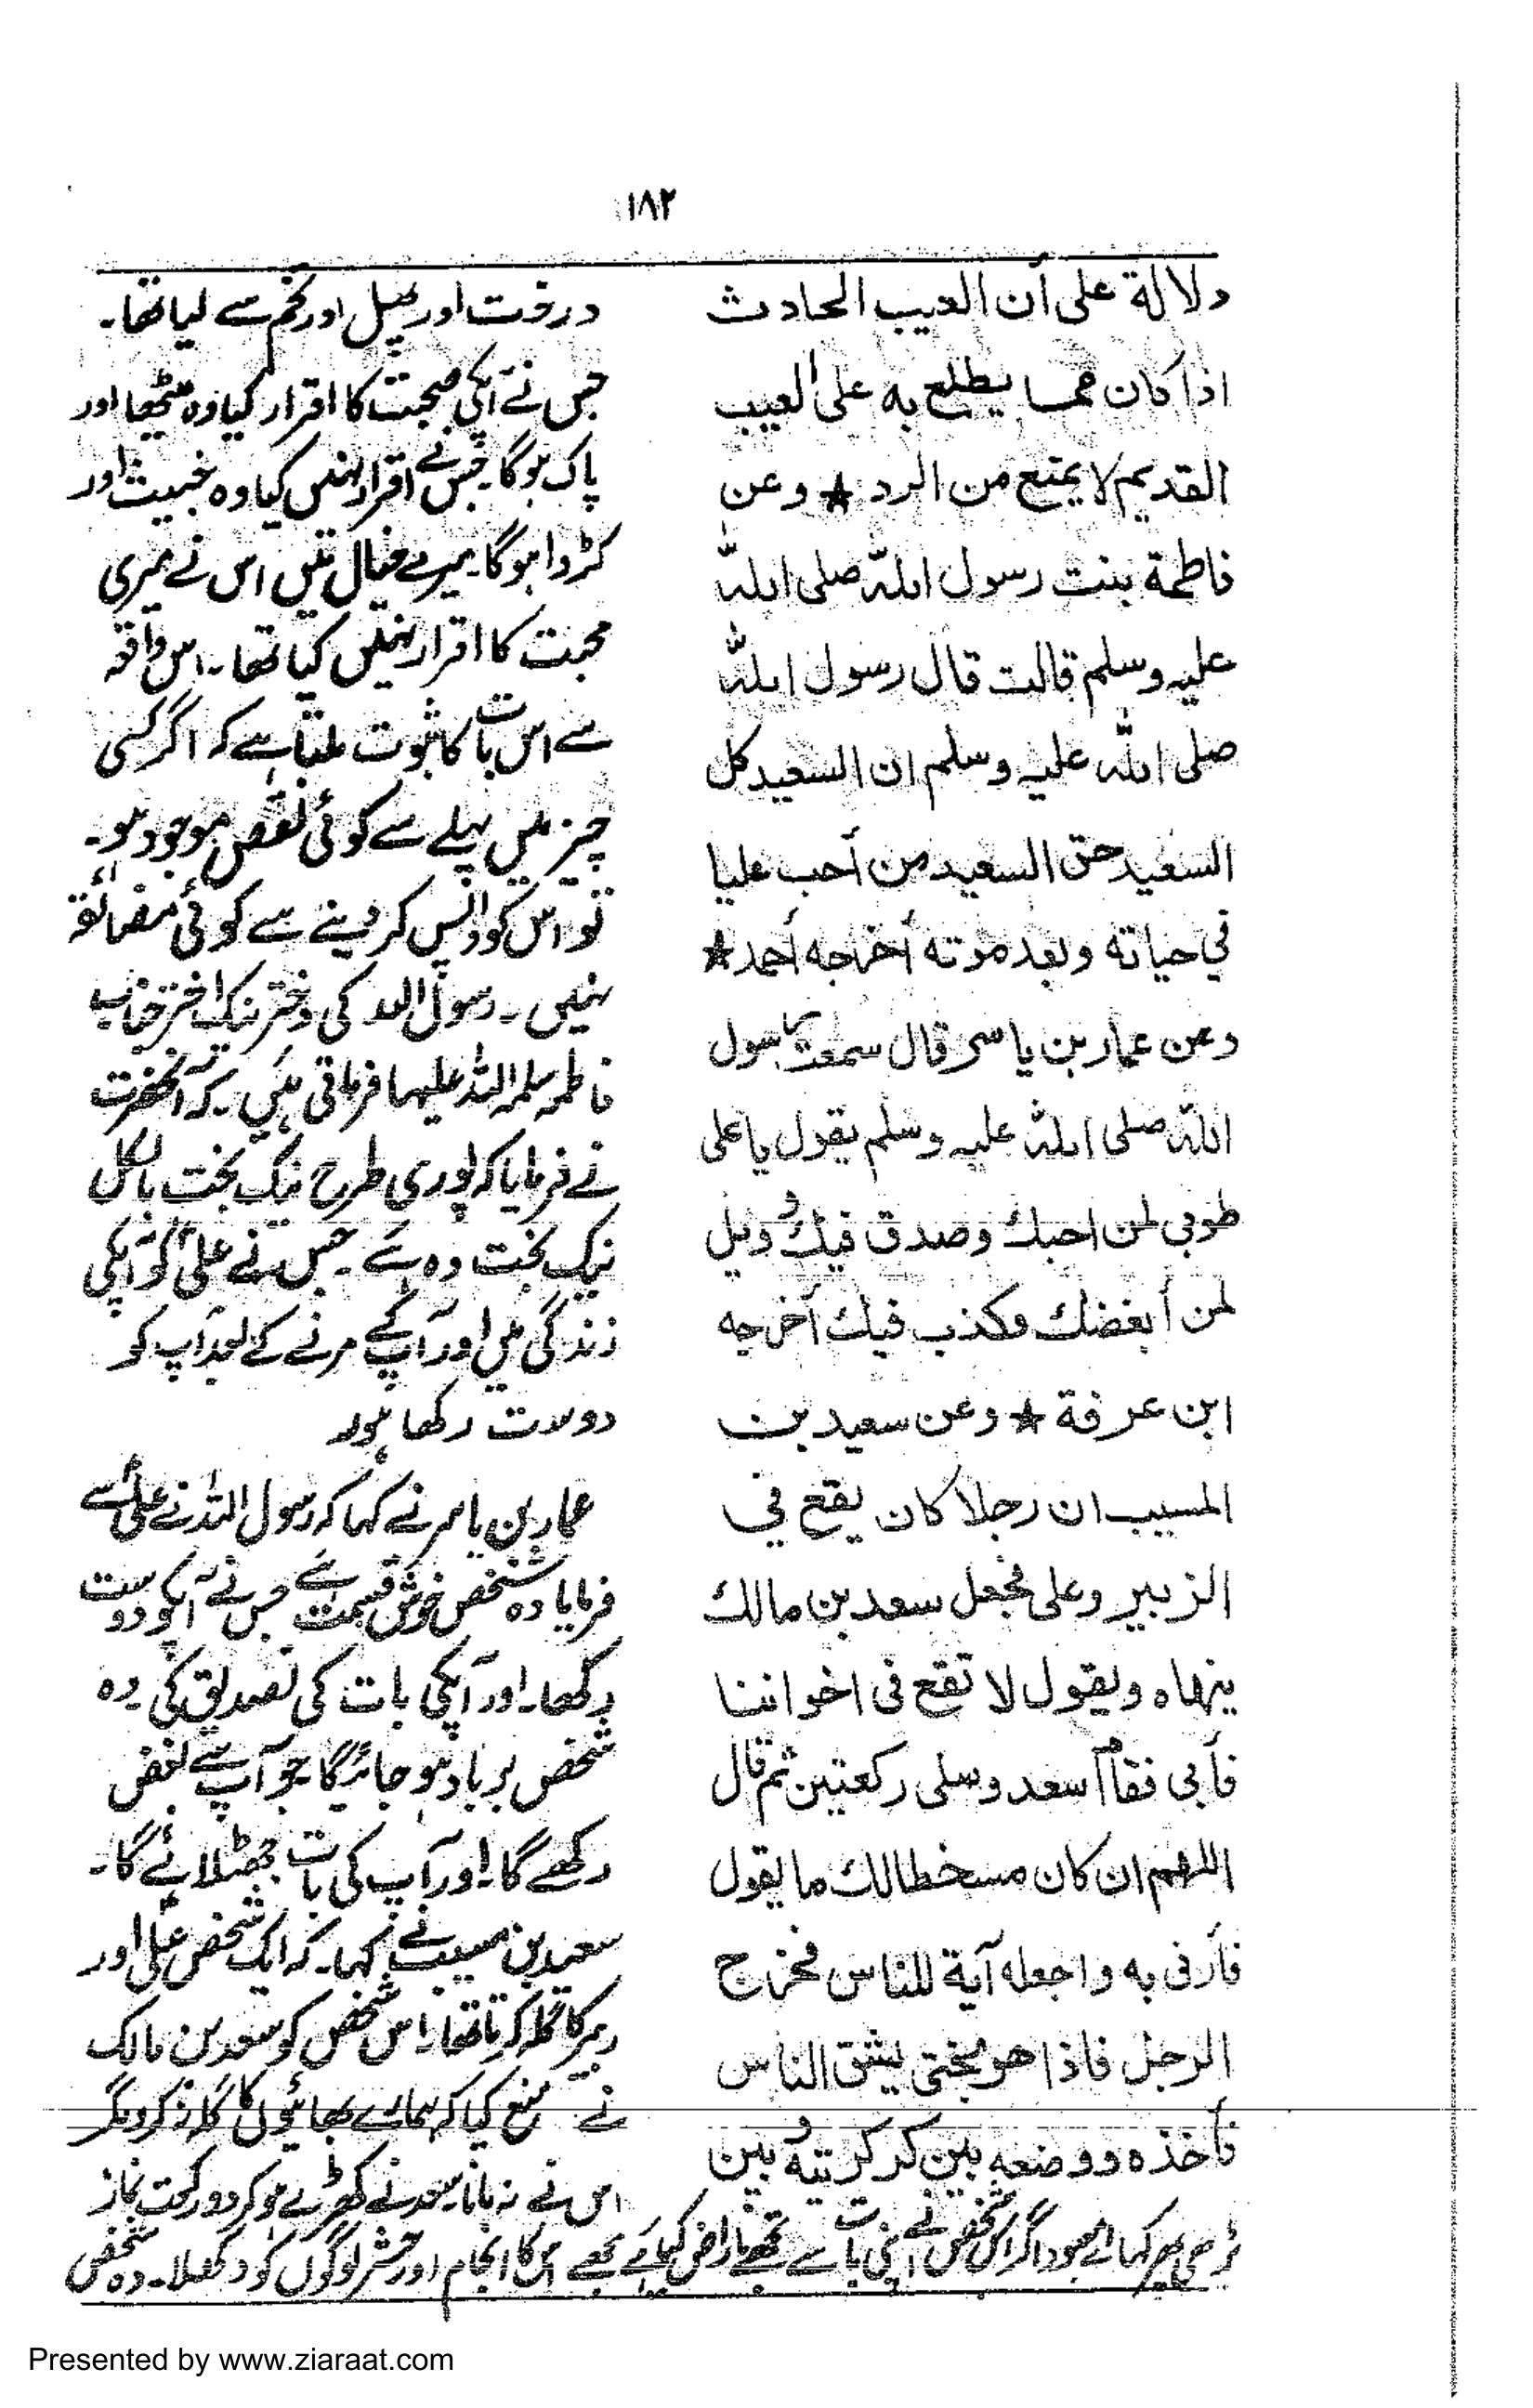 ۱۸۲
دلالة على أن العيب الحادث
اذا كان مما يطلع به على العيب
القديم لا يمتع من الرد ★ وعن
فاطمة بنت رسول الله صلى الله
عليه وسلم قالت قال رسول الله
صلى الله عليه وسلم ان السعيد كل
السعيد حق السعيد من أحب عليا
في حياته وبعد موته أخرجه أحمد ★
وعن عمار بن ياسر قال سمعت رسول
الله صلى الله عليه وسلم يقول يا على
طوبى لمن احبك وصدق فيك وويل
لمن أبغضك وكذب فيك أخرجه
ابن عرفة ★ وعن سعيد بن
المسيب ان رجلا كان يقع في
الزبير وعلى فجعل سعد بن مالك
ينهاه ويقول لا تقع فى اخواننا
فأبى فقام سعد وصلى ركعتين ثم قال
اللهم ان كان مسخطا لك ما يقول
فأرنى به واجعله آية للناس فخرج
الرجل فاذا هو ببختى يشق الناس
فأخذه ووضعه بين كركرته وبين
درخت اور پھل اور تخم سے لیا تھا۔
جس نے آپکی محبت کا اقرار کیا وہ میٹھا اور
پاک ہوگا جس نے اقرار نہیں کیا وہ خبیث اور
کڑوا ہوگا۔ میرے خیال میں اس نے میری
محبت کا اقرار نہیں کیا تھا۔ اس واقعہ
سے اس بات کا ثبوت ملتا ہے کہ اگر کسی
چیز میں پہلے سے کوئی نقص موجود ہو۔
تو اس کو واپس کر دینے سے کوئی مضائقہ
نہیں۔ رسول اللہ کی دختر نیک اختر جناب
فاطمہ سلمہ اللہ علیہا فرماتی ہیں۔ کہ آنحضرت
نے فرمایا کہ پوری طرح نیک بخت بالکل
نیک بخت وہ ہے۔ جس نے علیؑ کو آپکی
زندگی میں اور آپ کے مرنے کے بعد آپ کو
دوست رکھا ہو۔
عمار بن یاسر نے کہا کہ رسول اللہ نے علیؑ سے
فرمایا وہ شخص خوش قسمت ہے جس نے آپکو دوست
رکھا۔ اور آپکی بات کی تصدیق کی۔ وہ
شخص برباد ہو جائیگا جو آپ سے بغض
رکھے گا۔ اور آپ کی بات جھٹلائے گا۔
سعید بن مسیب نے کہا۔ کہ ایک شخص علی اور
زبیر کا گلہ کرتا تھا۔ اس شخص کو سعد بن مالک
نے منع کیا کہ ہمارے بھائیوں کا گلہ نہ کرو مگر
اس نے نہ مانا۔ سعد نے کھڑے ہو کر دو رکعت نماز
پڑھی پھر کہا اے معبود اگر اس شخص نے اپنی بات سے تجھے ناراض کیا ہے مجھے اس کا انجام اور حشر لوگوں کو دکھلا۔ وہ شخص
Presented by www.ziaraat.com